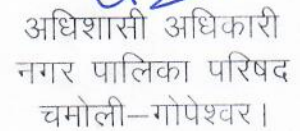 अधिशासी अधिकारी
नगर पालिका परिषद
चमोली–गोपेश्वर।